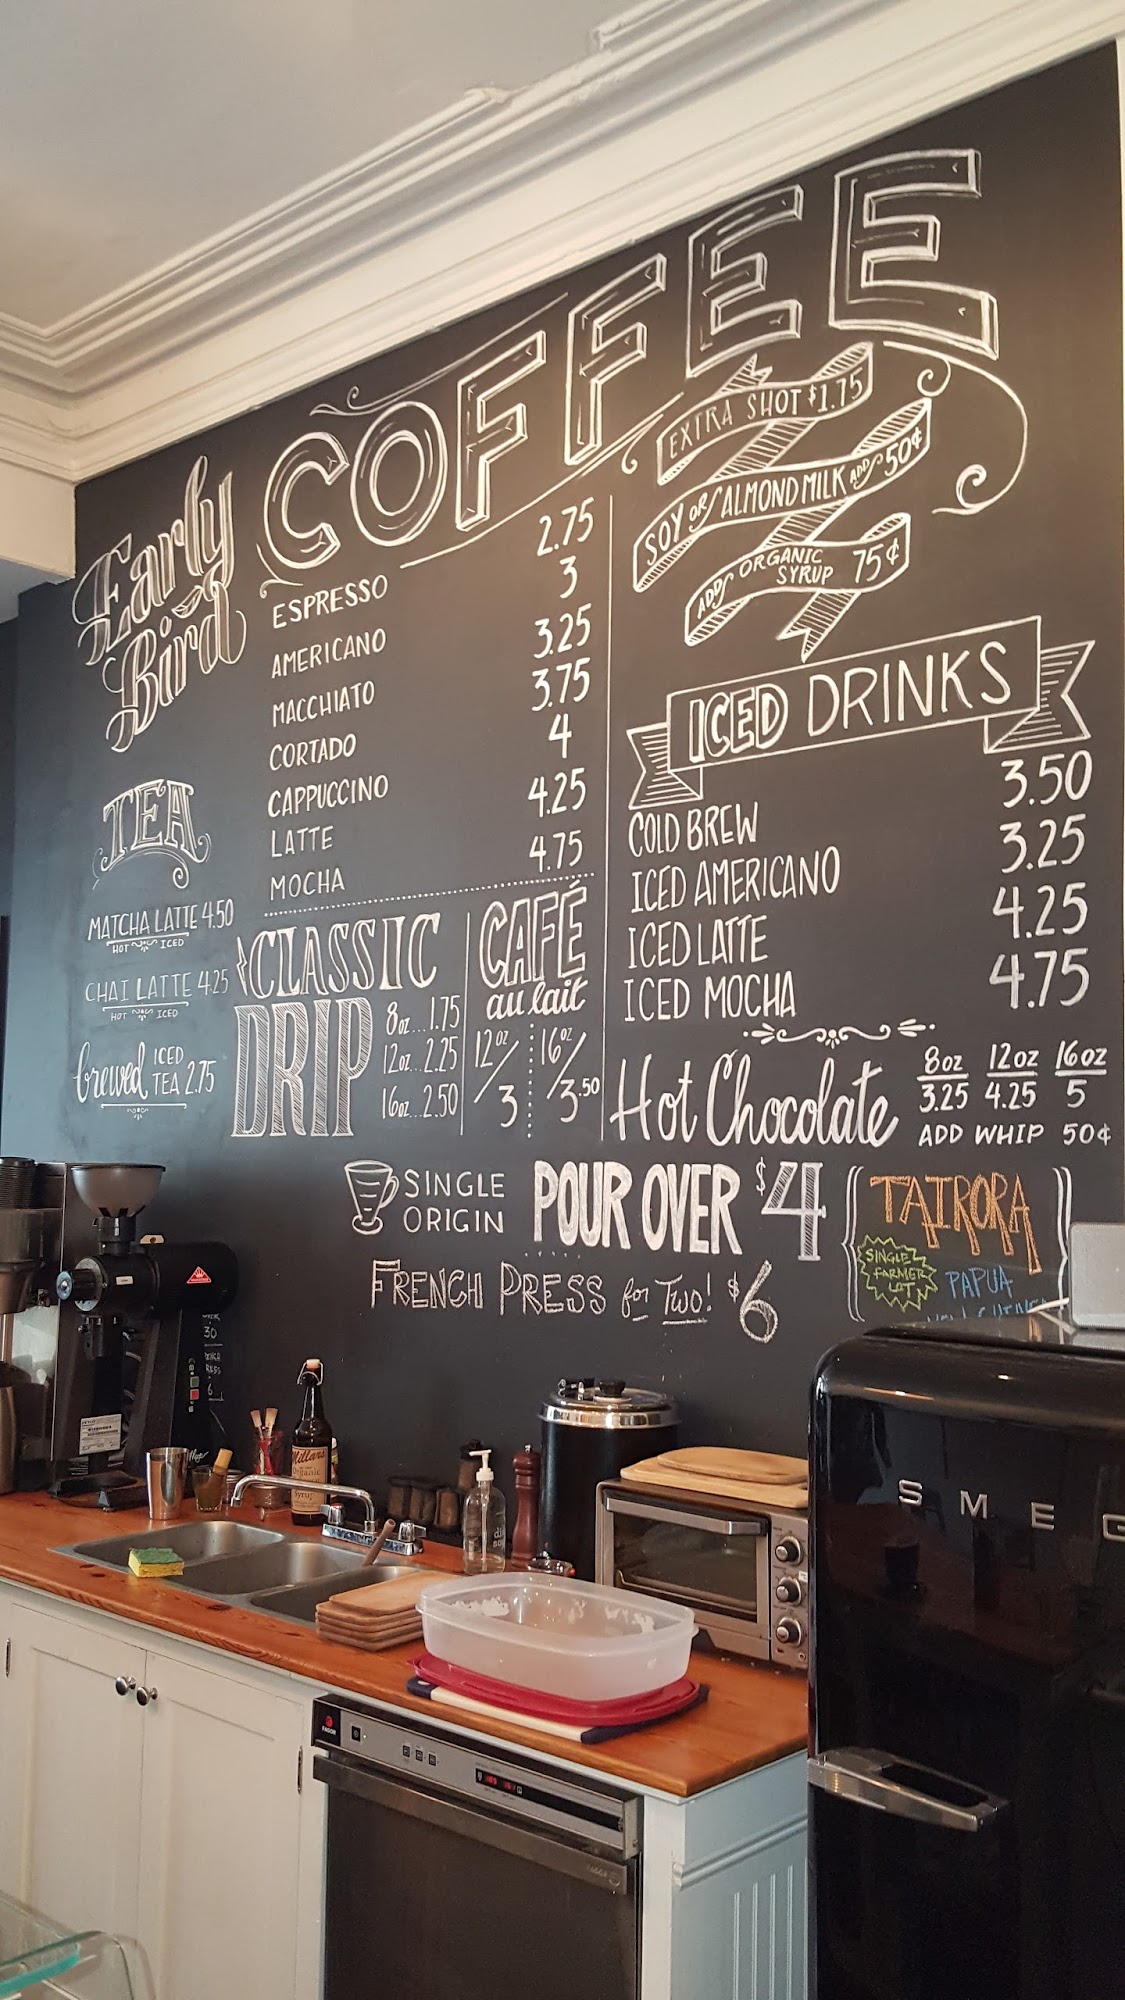 Early
Bird
COFFEE
ESPRESSO 2.75
AMERICANO 3
MACCHIATO 3.25
CORTADO 3.75
CAPPUCCINO 4
LATTE 4.25
MOCHA 4.75
EXTRA SHOT $1.75
SOY OR ALMOND MILK ADD 50¢
ADD ORGANIC SYRUP 75¢
TEA
MATCHA LATTE 4.50
HOT ICED
CHAI LATTE 4.25
HOT ICED
brewed ICED TEA 2.75
CLASSIC
DRIP
8oz...1.75
12oz...2.25
16oz...2.50
CAFÉ
au lait
12oz/3
16oz/3.50
ICED DRINKS
COLD BREW 3.50
ICED AMERICANO 3.25
ICED LATTE 4.25
ICED MOCHA 4.75
Hot Chocolate
8oz 12oz 16oz
3.25 4.25 5
ADD WHIP 50¢
SINGLE ORIGIN POUR OVER $4
FRENCH PRESS for Two! $6
TAIRORA
SINGLE
FARMER
LOT
PAPUA
30
6
Organic
Syrup
SMEG
FAGOR